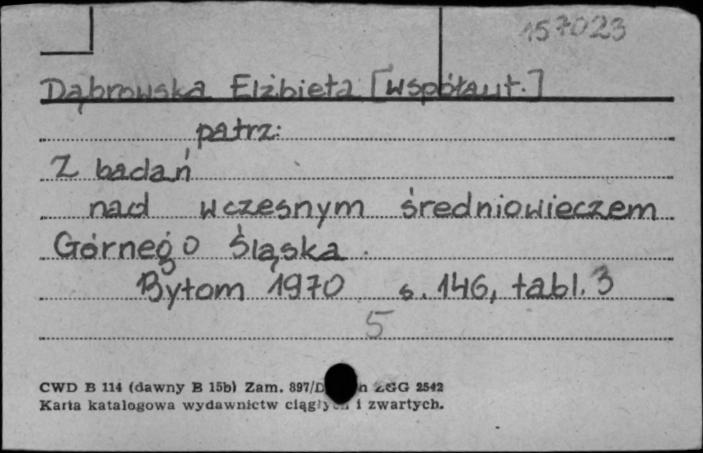 157023
Dąbrowska Elżbieta [współaut.]
patrz:
Z badań
nad wczesnym średniowieczem
Górnego Śląska.
Bytom 1970 s. 146, tabl. 3
5
CWD B 114 (dawny B 15b) Zam. 897/D ZGG 2542
Karta katalogowa wydawnictw ciągłych i zwartych.